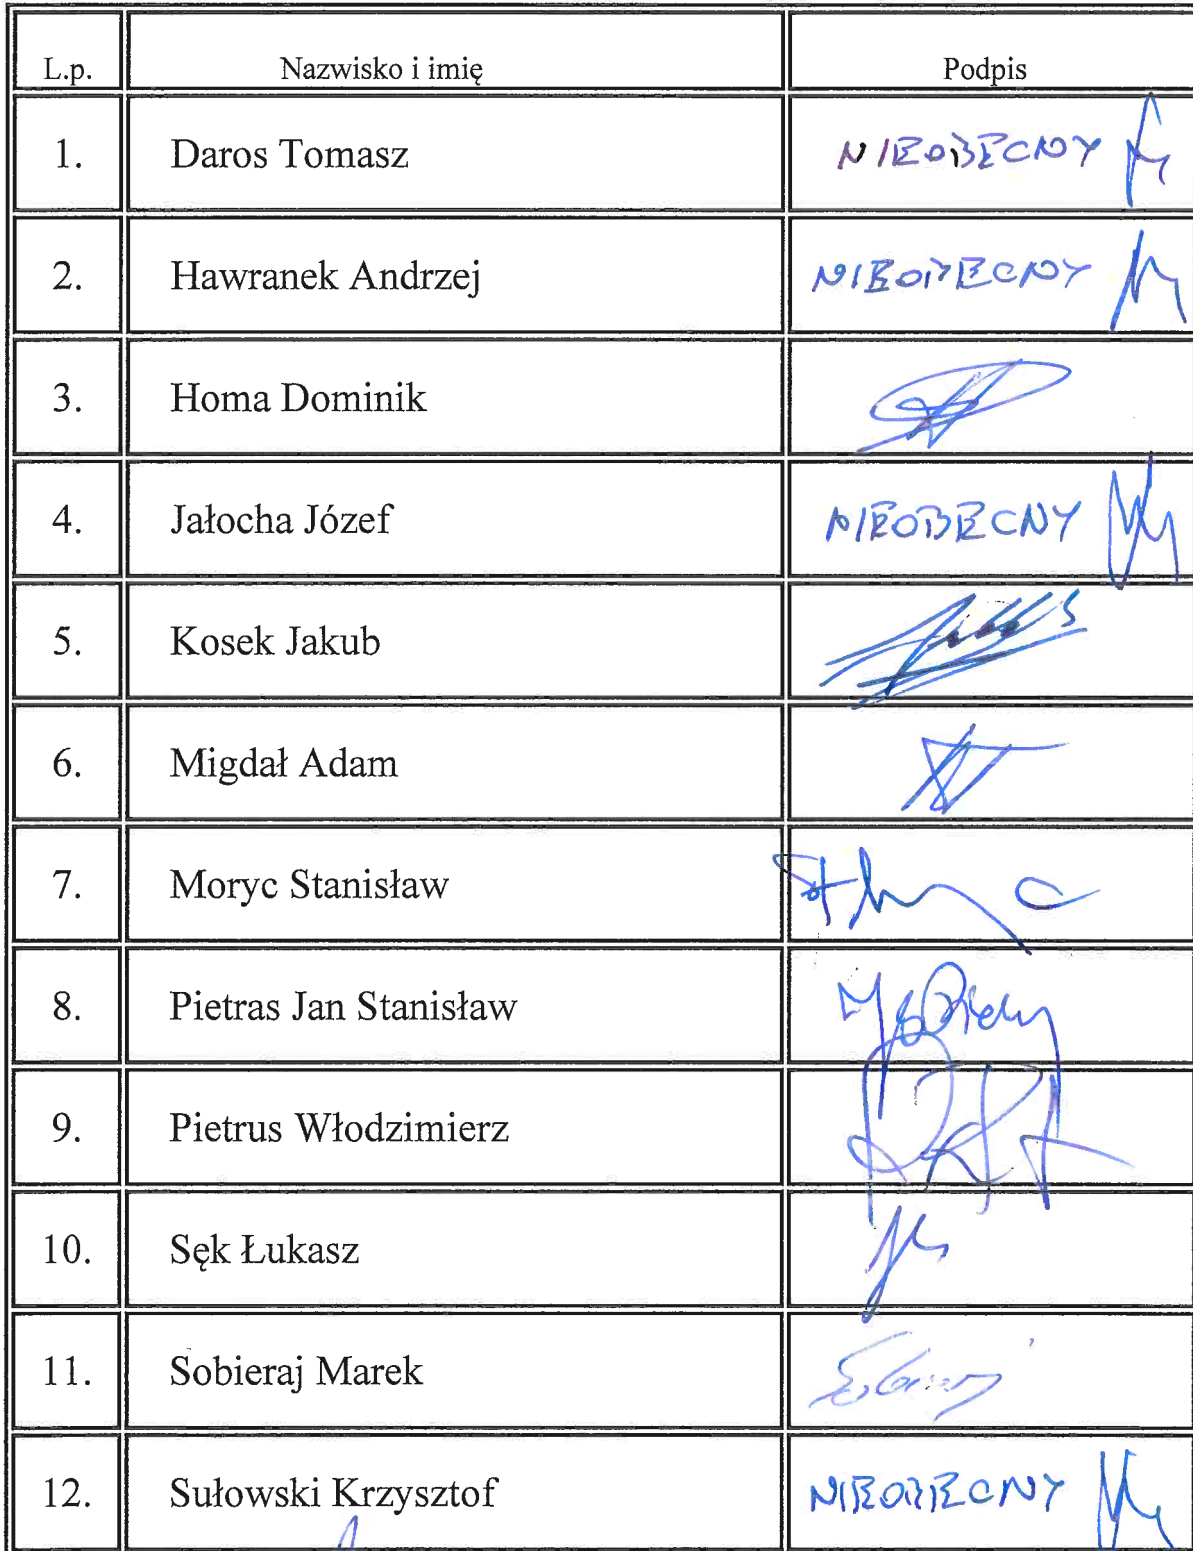 L.p. Nazwisko i imię Podpis
1. Daros Tomasz NIEOBECNY
2. Hawranek Andrzej NIEOBECNY
3. Homa Dominik
4. Jałocha Józef NIEOBECNY
5. Kosek Jakub
6. Migdał Adam
7. Moryc Stanisław
8. Pietras Jan Stanisław
9. Pietrus Włodzimierz
10. Sęk Łukasz
11. Sobieraj Marek
12. Sułowski Krzysztof NIEOBECNY